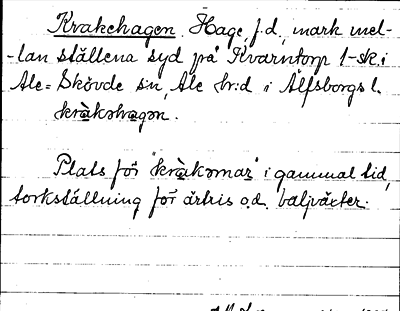 Krakehagen, Hage, f.d., mark mel-
-lan ställena syd på Kvarntorp 1-sk. i
Ale=Skövde sn, Ale hrd i Älfsborgs l.
kràkəhagən.
Plats för "kràkəmar" i gammal tid,
torkställning för ärtris o.d. baljväxter.